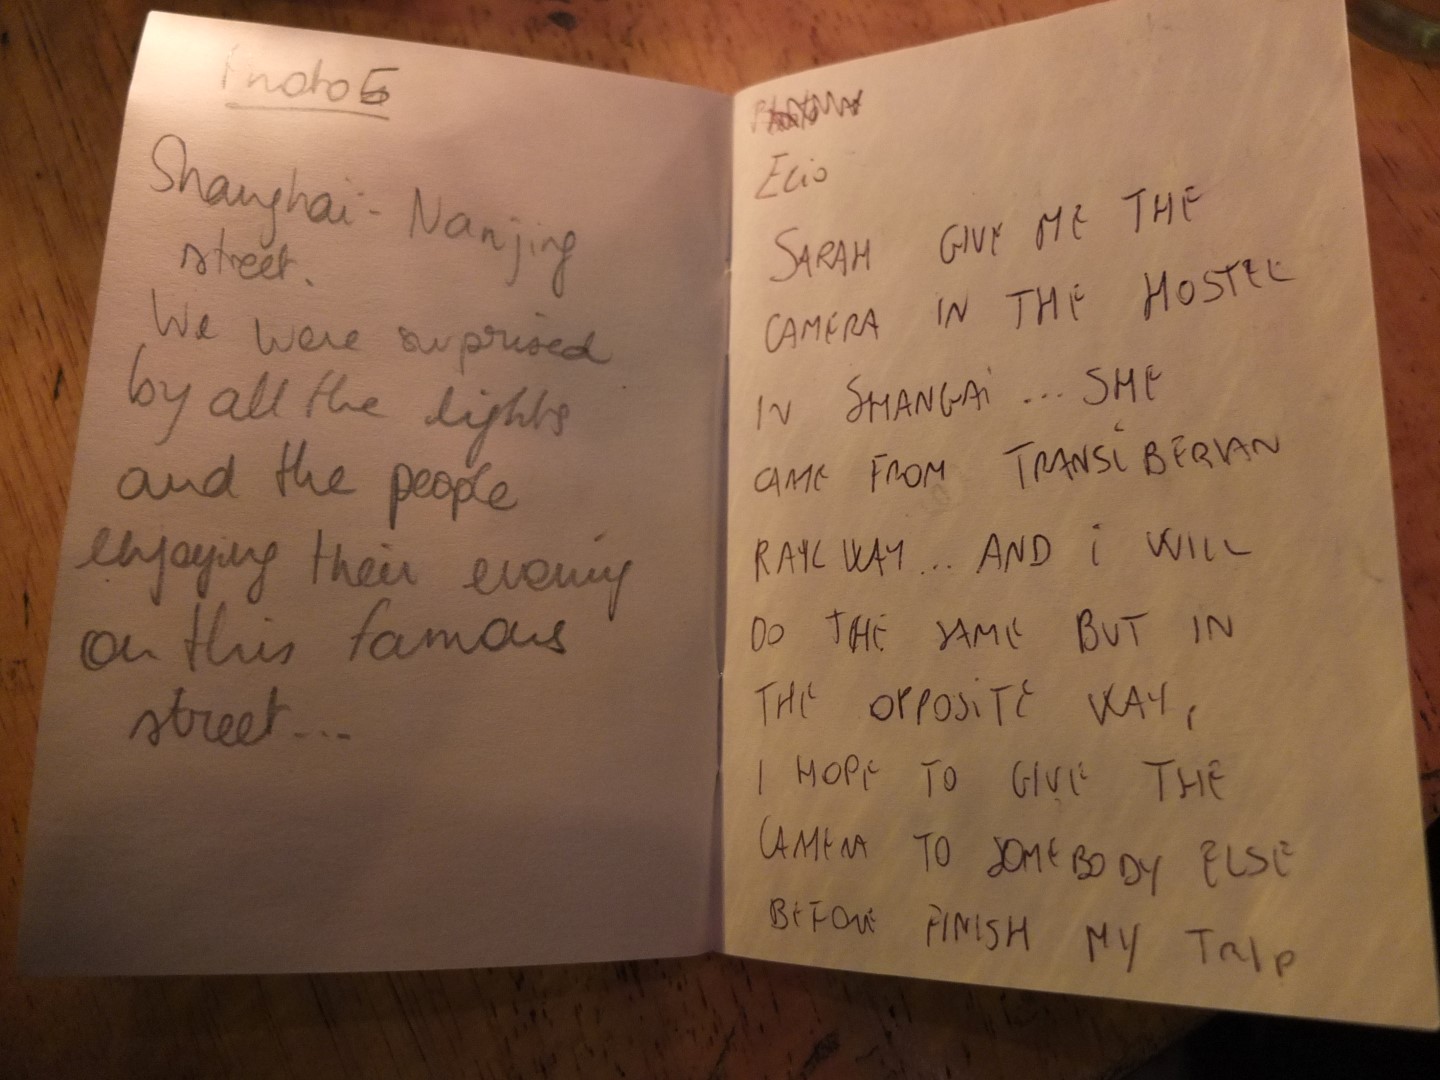 Shanghai - Nanjing
street.
We were surprised
by all the lights
and the people
enjoying their evening
on this famous
street...
Ecio
SARAH GIVE ME THE
CAMERA IN THE HOSTEL
IN SHANGAi ... SHE
CAME FROM TRANSiBERIAN
RAYLWAY... AND i WILL
DO THE SAME BUT IN
THE OPPOSiTE WAY,
I HOPE TO GIVE THE
CAMERA TO SOMEBODY ELSE
BEFORE FINISH MY TRIP